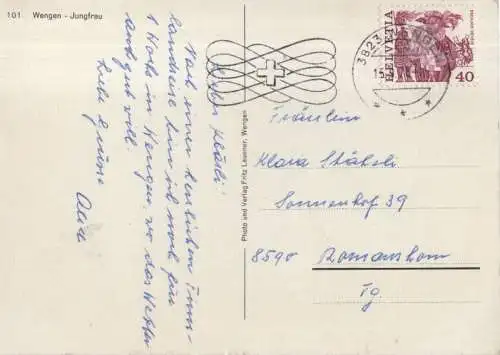 101 Wengen - Jungfrau
Liebes Klärli!
Nach einer herrlichen
bin ich noch für
1 Woche in Wengen, wo das Wetter
auch gut will.
Liebe Grüsse
Photo und Verlag Fritz Lauener, Wengen
HELVETIA
40
3823
15.
Fräulein
Klara Stäheli
Sonnenhof 39
8590 Romanshorn
Tg.